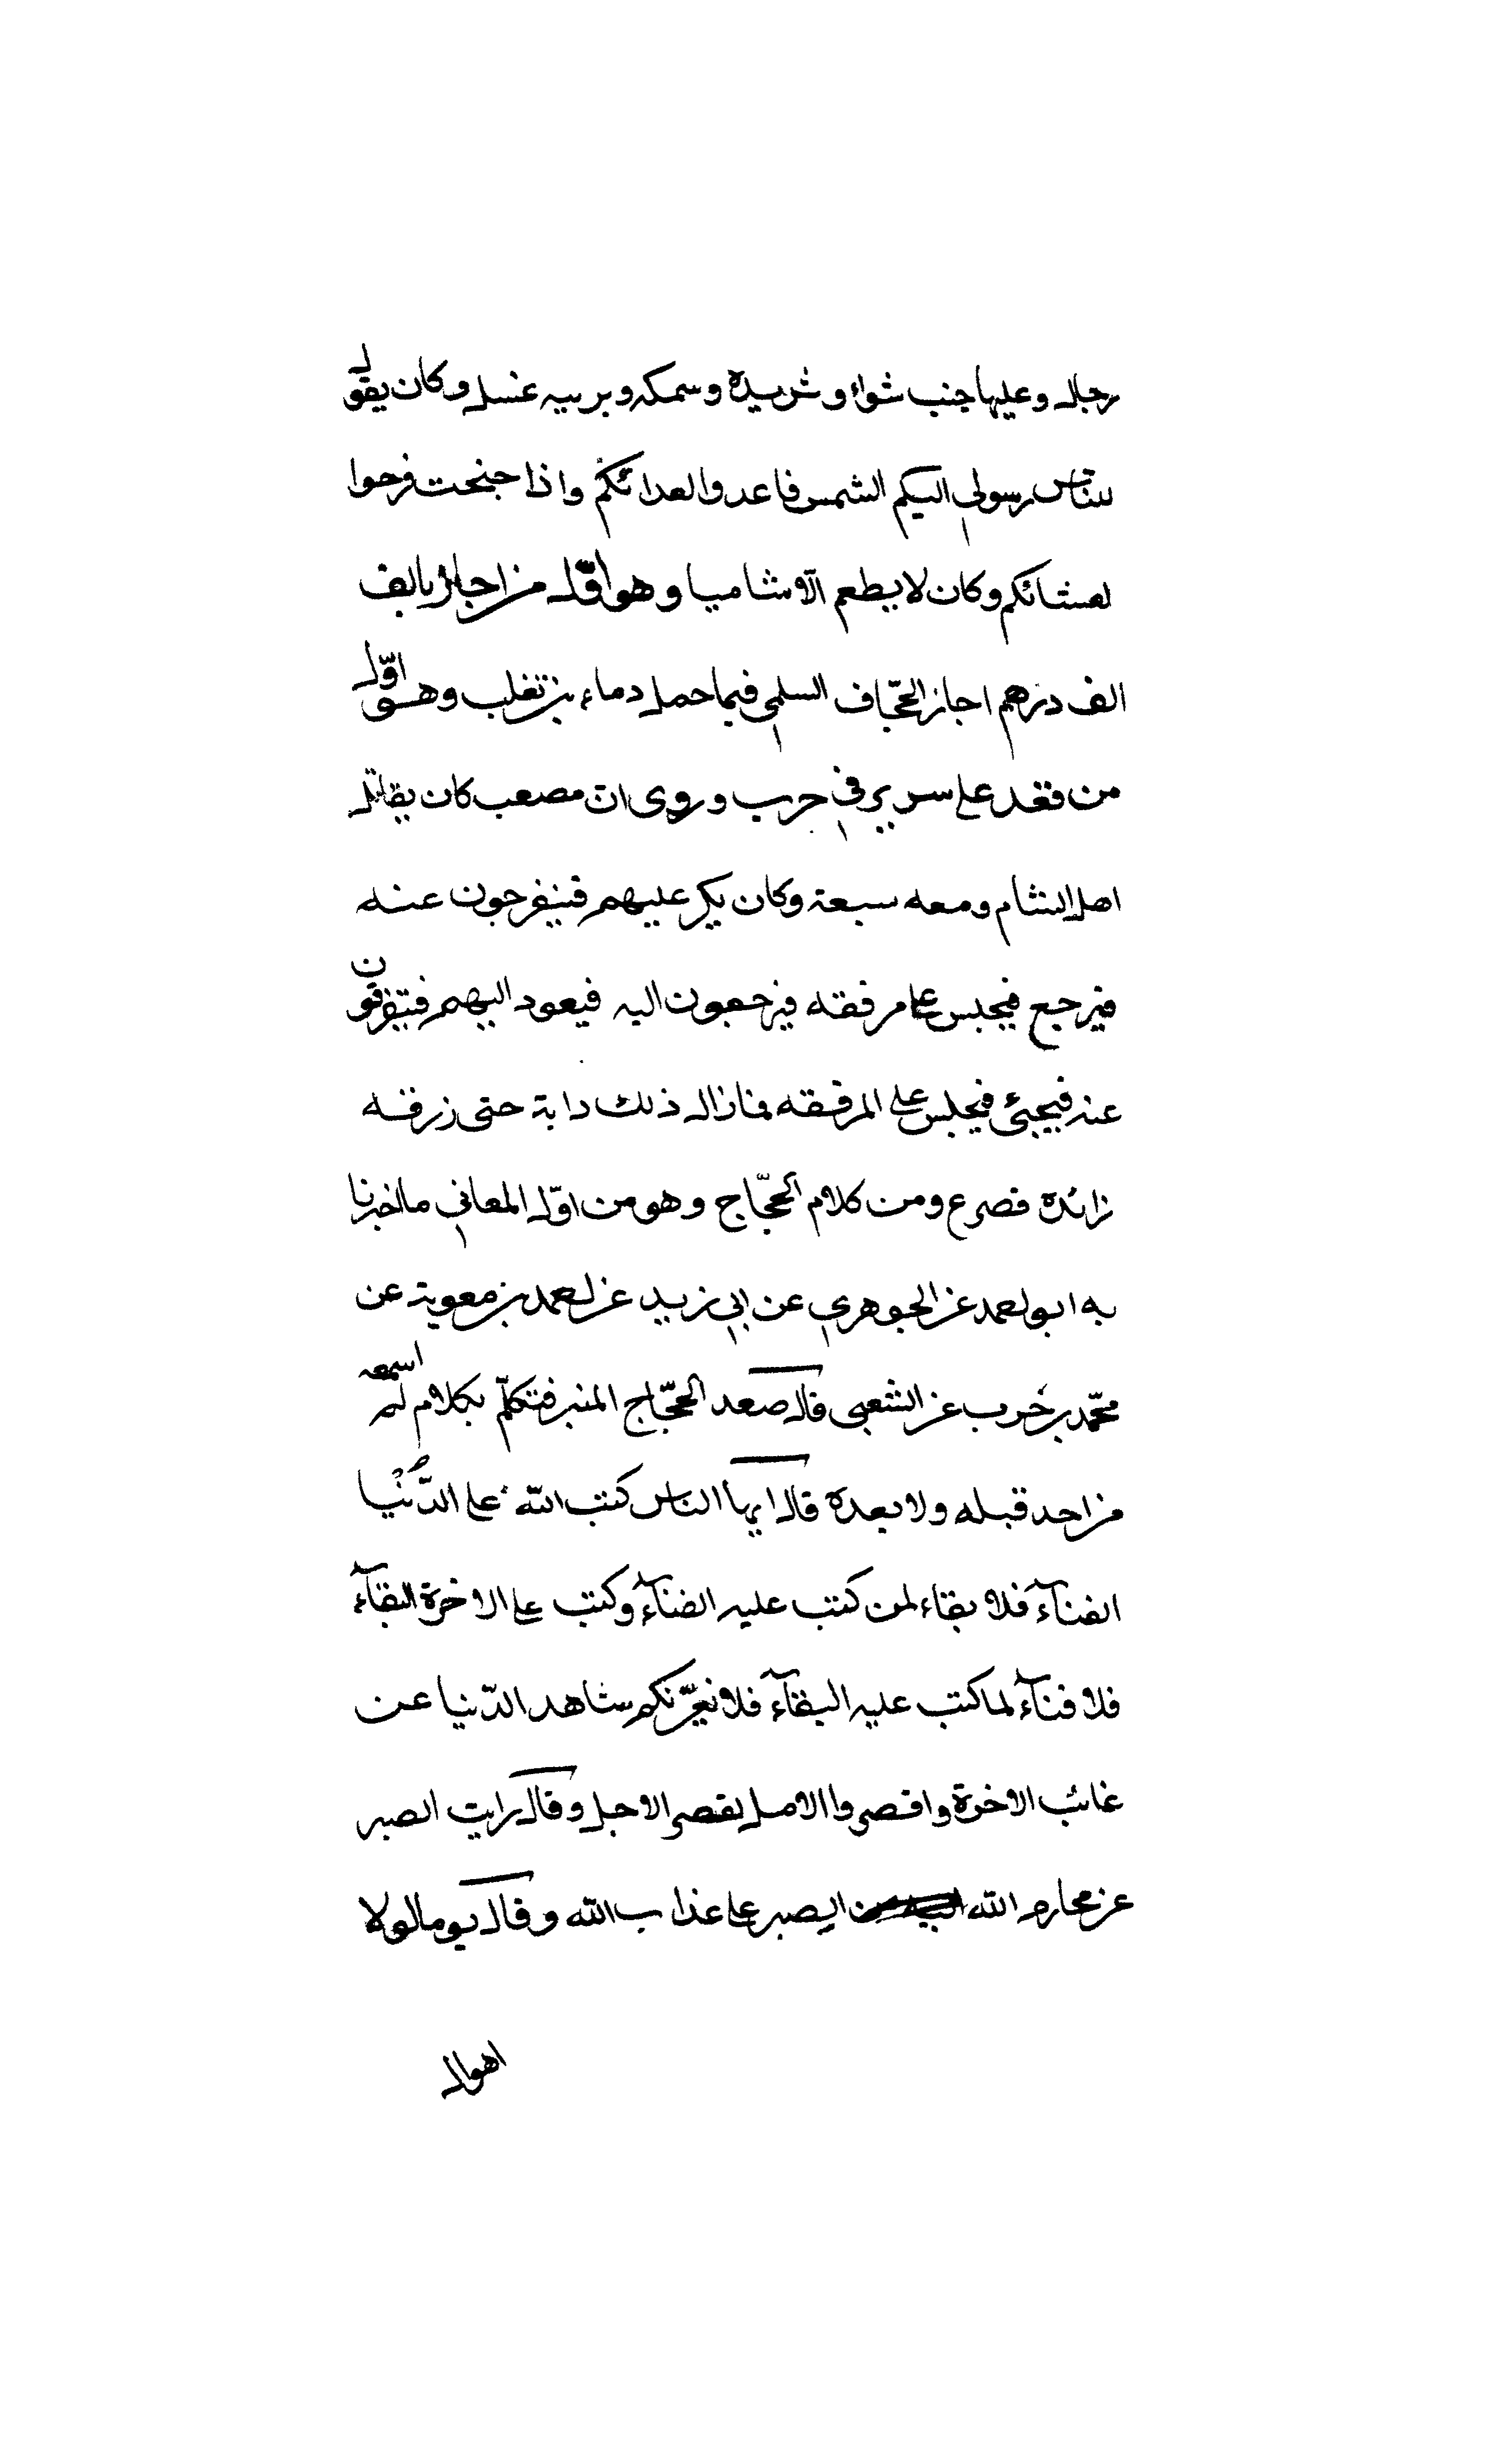 رجال وعليها جنب شواء وثريدة وسمكه وبرنيه عسل وكان يقول
للناس رسولي اليكم الشمس فاعدوا لغدائكم واذا جنحت فرحوا
لعشائكم وكان لا يطعم الّا شاميا وهو اوّل من اجاز بالف
الف درهم اجاز الجحّاف السلمي فيما حمل دماء بنى تغلب وهو اوّل
من قعد على سرير في حرب وروى انّ مصعب كان يقاتل
اهل الشام ومعه سبعة وكان يكر عليهم فينفرجون عنه
فيرجع فيجلس على مرفقه فيرجعون اليه فيعود اليهم فيتفرقون
عنه فيجئ فيجلس على المرفقه فما زال ذلك دابة حتى زرقه
زائدة فصرع ومن كلام الحجّاج وهو من اوّل المعاني ما اخبرنا
به ابو احمد عن الجوهري عن ابي زيد عن احمد بن معوية عن
محمّد بن حرب عن الشعبى قال صعد الحجّاج المنبر فتكلّم بكلام لم اسمعه
من احد قبله ولا بعده قال ايها الناس كتب اللّه على الدُّنْيا
الفنآء فلا بقاء لمن كتب عليه الفنآء وكتب على الاخرة البقآء
فلا فنآء لما كتب عليه البقآء فلا يغرّنكم شاهد الدّنيا عن
غائب الاخرة واقصروا الامل لقصر الاجل وقال رايت الصبر
عن محارم اللّه ايسر من الصبر على عذاب اللّه وقال يوما لولا
اهوال